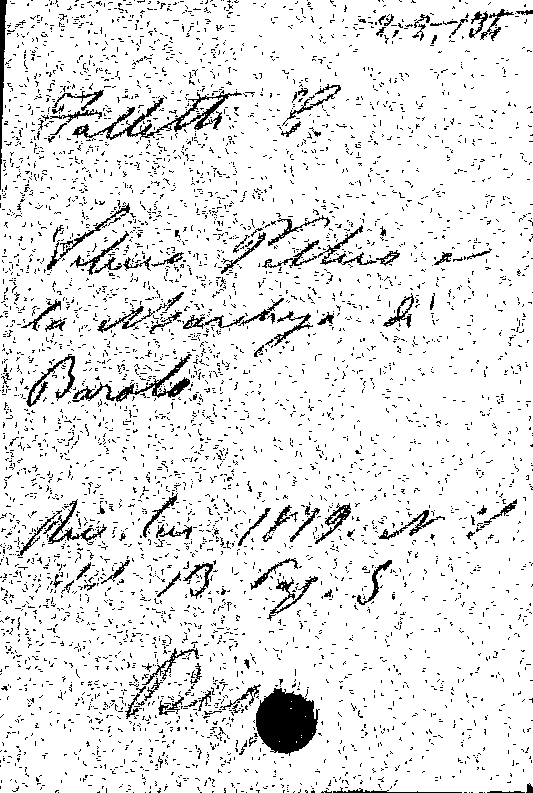 2.2.136
Falletti C.
Silvio Pellico e
la Marchesa di
Barolo.
Riv. Eur. 1879. N.
del 13. Pag. 5.
Bio